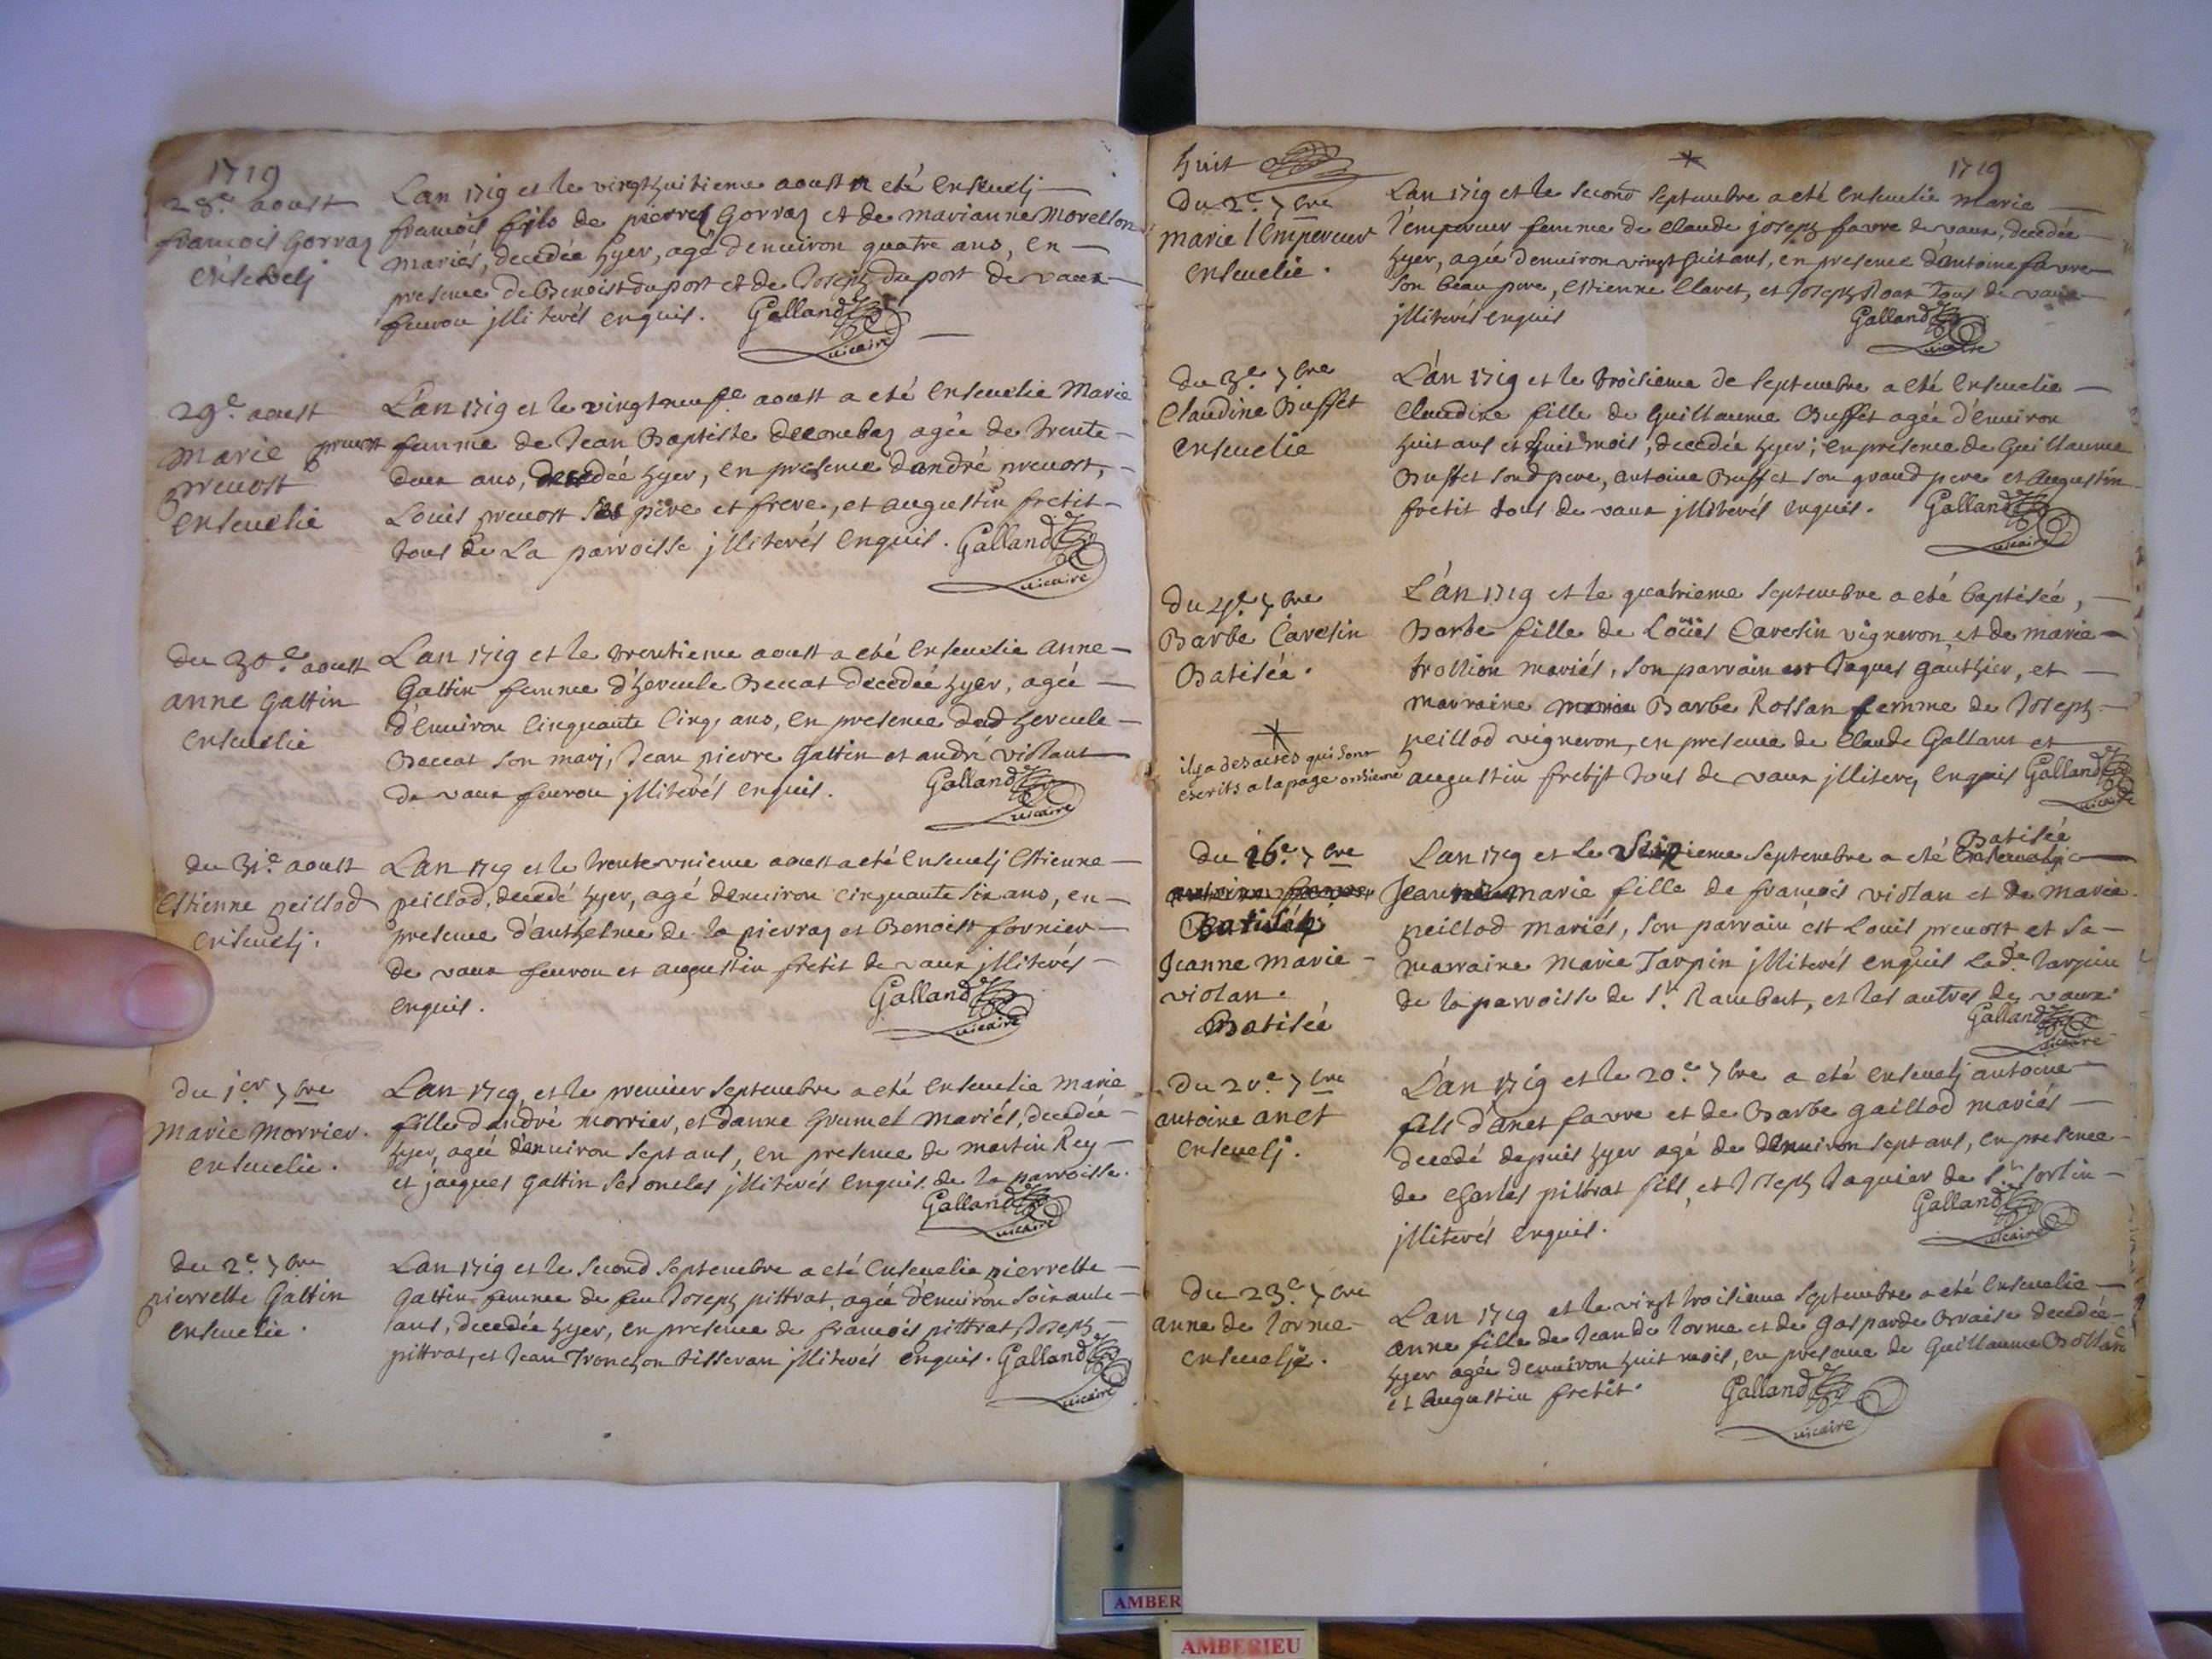 1719
28.e aoust
francois Gorraz
ensevelj
Lan 1719 et le vingthuitieme aoust a eté ensevelj
francois fils de pierre Gorraz et de marianne Morellon
mariés, decedée hyer, agé denuiron quatre ans, en
presence de Benoist duport et de Joseph duport de vaux
feurou jlliterés enquis. Galland
vicaire
29.e aoust
Marie
prevost
ensevelie
Lan 1719 et le vingtneufe aoust a eté ensevelie Marie
prevost femme de Jean Baptiste decombaz agée de trente
deux ans, decedée hyer, en presence dandré prevost,
Louis prevost ses pere et frere, et augustin fretit
tous de La parroisse jlliterés enquis. Galland
vicaire
du 30.e aoust
anne Gattin
ensevelie
Lan 1719 et le trentieme aoust a eté ensevelie anne
Gattin femme d'hercule Beccat decedée hyer, agée
d'enuiron cinquante cinq ans, en presence dud hercule
Beccat son marj, Jean pierre Gattin et andré violant
de vaux feurou jlliterés enquis. Galland
vicaire
du 31.e aoust
Estienne peillod
ensevelj.
Lan 1719 et le trente vnieme aoust a eté ensevelj Estienne
peillod, decedé hyer, agé denuiron cinquante six ans, en
presence d'anthelme de la pierraz et Benoist fornier
de vaux feurou et augustin fretit de vaux jlliterés
enquis. Galland
vicaire
du 1.er 7bre
Marie Morrier.
ensevelie.
Lan 1719 et le premier septembre a eté ensevelie marie
fille dandré morrier, et danne Grumet mariés, decedée
hyer, agée denuiron sept ans, en presence de martin Rey
et jacques Gattin ses oncles jlliterés enquis de la parroisse.
Galland
vicaire
du 2.e 7bre
pierrette Gattin
ensevelie.
Lan 1719 et le second septembre a eté ensevelie pierrette
Gattin femme de feu Joseph pittrat, agée denuiron soixante
ans, decedée hyer, en presence de francois pittrat, Joseph
pittrat, et Jean Tronchon tisseran jlliterés enquis. Galland
vicaire
huit
*
1719
Du 2.e 7bre
Marie l'Empereur
ensevelie.
Lan 1719 et le second septembre a eté ensevelie marie
l'empereur femme de claude joseph favre de vaux, decedée
hyer, agée denuiron vingt huit ans, en presence d'antoine favre
son beau pere, Estienne Claret, et Joseph Roax tous de vaux
jlliterés enquis Galland
vicaire
Du 3.e 7bre
Claudine Buffet
ensevelie
L'an 1719 et le troisieme de septembre a eté ensevelie
claudine fille de Guillaume Buffet agée d'enuiron
huit ans et huit mois, decedée hyer; en presence de Guillaume
Buffet sond pere, antoine Buffet son grand pere et augustin
fretit tous de vaux jlliterés enquis. Galland
vicaire
Du 4.e 7bre
Barbe Cavesin
Batisée.
L'an 1719 et le quatrieme septembre a eté baptisée,
Barbe fille de Loüis Cavesin vigneron, et de marie
trollion mariés, son parrain est Jaques gauthier, et
marraine Barbe Rossan femme de Joseph
peillod vigneron, en presence de Claude Gallant et
augustin fretijt tous de vaux jlliterez enquis Galland
vicaire
*
il y a des actes qui sont
escrits a la page onsieme
Du 16.e 7bre
Batisée
Jeanne Marie
violan.
Batisée
Lan 1719 et Le Seizieme septembre a eté Batisée
Jeanne marie fille de francois violan et de Marie
peillod mariés, son parrain est Louis prevost et sa
marraine Marie Tarpin jlliterés enquis Lad.e tarpin
de la parroisse de S.t Rambert, et les autres de vaux.
Galland
vicaire
Du 20.e 7bre
antoine anet
ensevelj.
L'an 1719 et le 20.e 7bre a eté ensevelj antoine
fils d'anet favre et de Barbe gaillod mariés
decedé depuis hyer agé de denuiron sept ans, en presence
de charles pittrat fils, et Joseph Jaquier de S.t sorlin
jlliterés enquis. Galland
vicaire
Du 23.e 7bre
anne de lorme
ensevelje.
Lan 1719 et le vingt troisieme septembre a eté ensevelie
anne fille de Jean de lorme et de gasparde Braise decedée
hyer agée denuiron huit mois, en presence de Guillaume Bollan
et augustin fretit. Galland
vicaire
AMBER
AMBERIEU